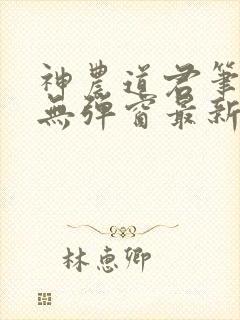 神農道君筆
無彈窗最新
林惠卿